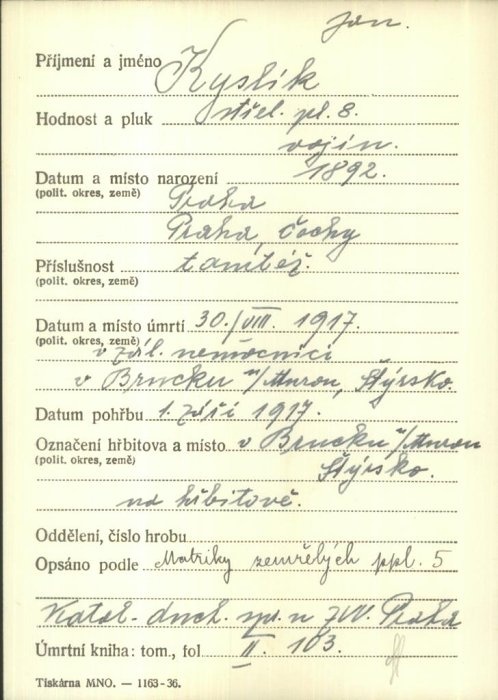 Jan.
Příjmení a jméno Kyslík
Hodnost a pluk střel. pl. 8.
vojín.
Datum a místo narození 1892.
(polit. okres, země) Praha
Praha, Čechy
Příslušnost tamtéž.
(polit. okres, země)
Datum a místo úmrtí 30./VIII. 1917.
(polit. okres, země) v zál. nemocnici
v Brucku n/Murou, Štýrsko.
Datum pohřbu 1. září 1917.
Označení hřbitova a místo v Brucku n/Murou
(polit. okres, země) Štýrsko.
na hřbitově.
Oddělení, číslo hrobu
Opsáno podle Matriky zemřelých ppl. 5
Katol. duch. spr. u ZVV. Praha
Úmrtní kniha: tom., fol II. 103.
Tiskárna MNO. — 1163-36.